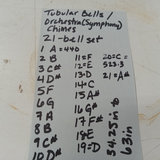 Tubular Bells /
Orchestra (Symphony)
Chimes
21-bell set
1 A=440
2 B
3 C#
4 D#
5 F
6 G
7 A
8 B
9 C#
10 D#
11=F
12=E
13=D
14=C
15 A#
16 G#
17 F#
18=E
19=D
20=C=
523.3
21=A#
54.25in b
63in